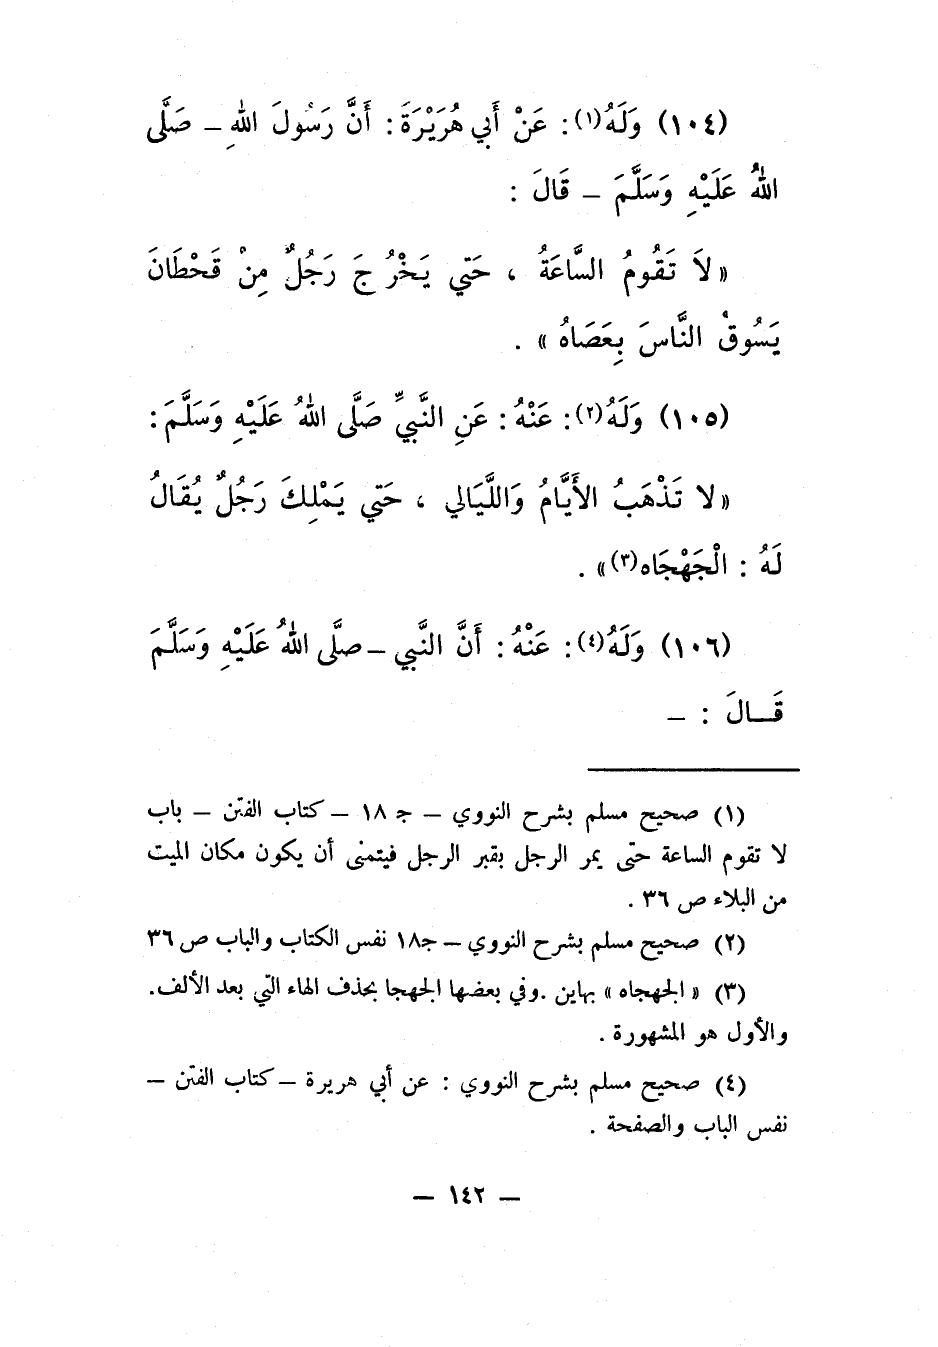 (١٠٤) وَلَهُ(١): عَنْ أَبي هُرَيْرَةَ: أَنَّ رَسُولَ اللهِ ــ صَلَّى
اللهُ عَلَيْهِ وَسَلَّمَ ــ قَالَ :
« لاَ تَقُومُ السَّاعَةُ ، حَتي يَخْرُجَ رَجُلٌ مِنْ قَحْطَانَ
يَسُوقُ النَّاسَ بِعَصَاهُ » .
(١٠٥) وَلَهُ(٢): عَنْهُ: عَنِ النَّبيِّ صَلَّى اللهُ عَلَيْهِ وَسَلَّمَ:
« لا تَذْهَبُ الأَيَّامُ وَاللَّيَالي ، حَتي يَمْلِكَ رَجُلٌ يُقَالُ
لَهُ : الْجَهْجَاه(٣)» .
(١٠٦) وَلَهُ(٤): عَنْهُ: أَنَّ النَّبي ــ صلَّى اللهُ عَلَيْهِ وَسَلَّمَ
قَـالَ : ــ
(١) صحيح مسلم بشرح النووي ــ جـ ١٨ ــ كتاب الفتن ــ باب
لا تقوم الساعة حتى يمر الرجل بقبر الرجل فيتمنى أن يكون مكان الميت
من البلاء ص ٣٦ .
(٢) صحيح مسلم بشرح النووي ــ جـ١٨ نفس الكتاب والباب ص ٣٦
(٣) « الجهجاه » بهاين .وفي بعضها الجهجا بحذف الهاء التي بعد الألف.
والأول هو المشهورة .
(٤) صحيح مسلم بشرح النووي : عن أبي هريرة ــ كتاب الفتن ــ
نفس الباب والصفحة .
ــ ١٤٢ ــ